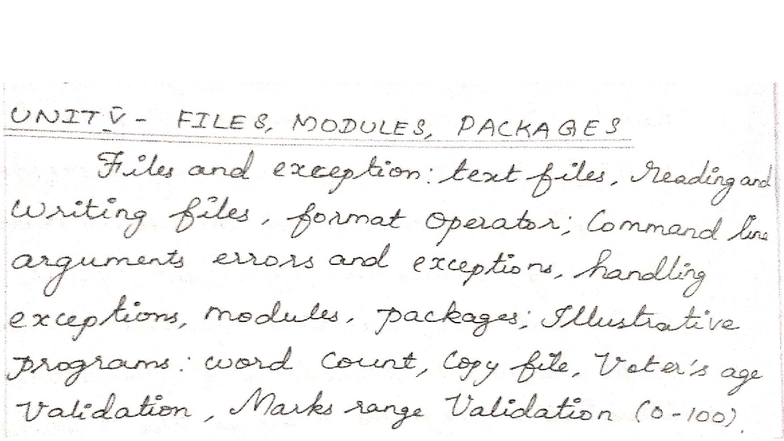 UNIT V - FILES, MODULES, PACKAGES
Files and exception: text files, reading and
writing files, format operator; Command line
arguments errors and exceptions, handling
exceptions, modules, packages; Illustrative
programs: word count, Copy file, Voter's age
Validation, Marks range Validation (0-100).